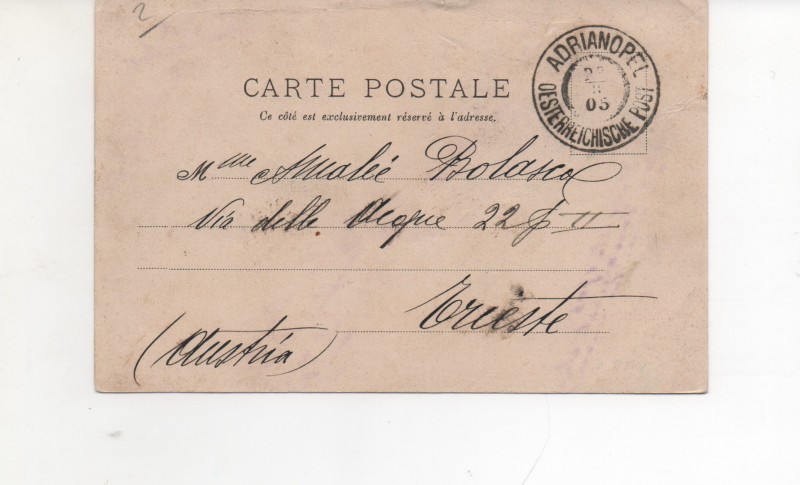 2
ADRIANOPEL
05
OESTERREICHISCHE POST
CARTE POSTALE
Ce côté est exclusivement réservé à l'adresse.
Mme Amalie Bolasco
Via delle Acque 22 p II
Trieste
(Austria)